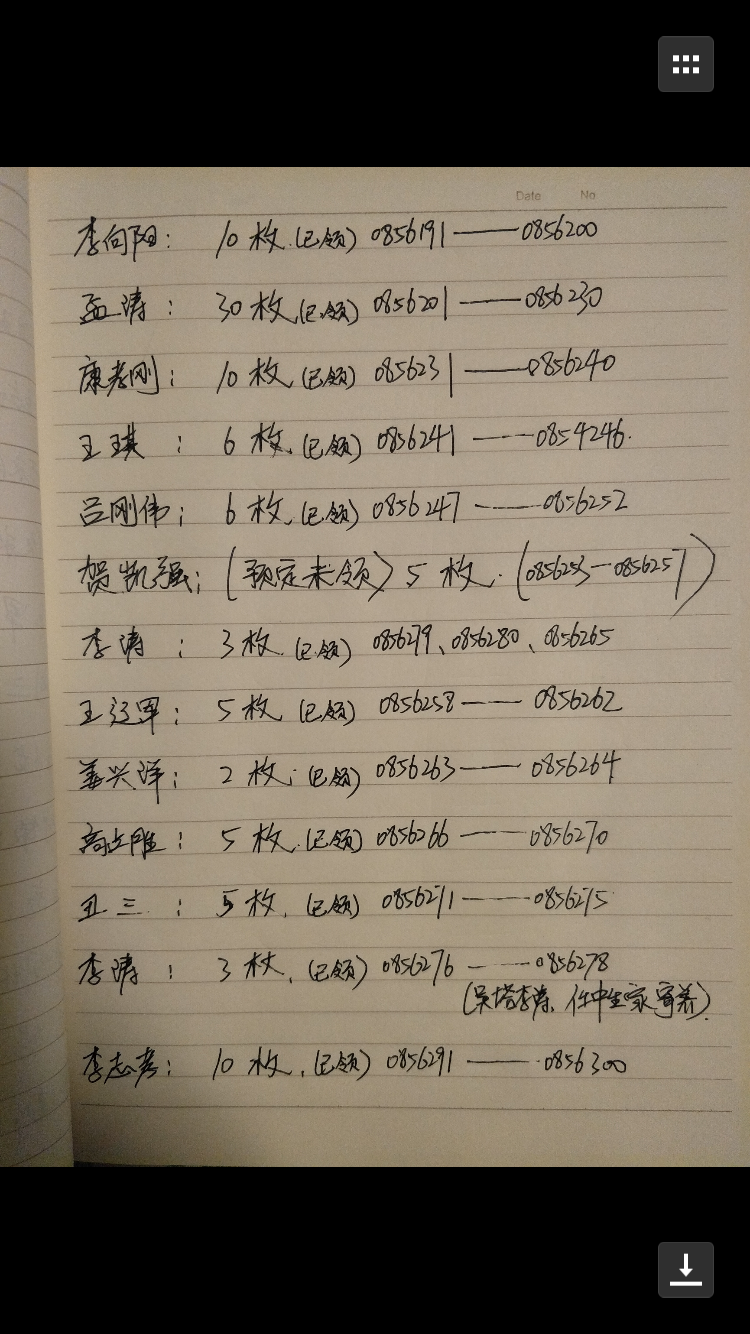 Date No
李向阳: 10枚.(已领) 0856191——0856200
孟涛: 30枚.(已领) 0856201——0856230
康孝刚: 10枚.(已领) 0856231——0856240
王琪: 6枚.(已领) 0856241——0854246.
吕刚伟: 6枚.(已领) 0856247——0856252
贺凯强:(预定未领)5枚.(0856253—0856257)
李涛: 3枚.(已领) 0856279、0856280、0856265
王辽军: 5枚.(已领) 0856258——0856262
姜兴洋: 2枚.(已领) 0856263——0856264
高占胜: 5枚.(已领) 0856266——0856270
丑三: 5枚.(已领) 0856271——0856275
李涛: 3枚.(已领) 0856276——0856278
(吴塔李涛、任中生家寄养).
李志孝: 10枚.(已领) 0856291——0856300